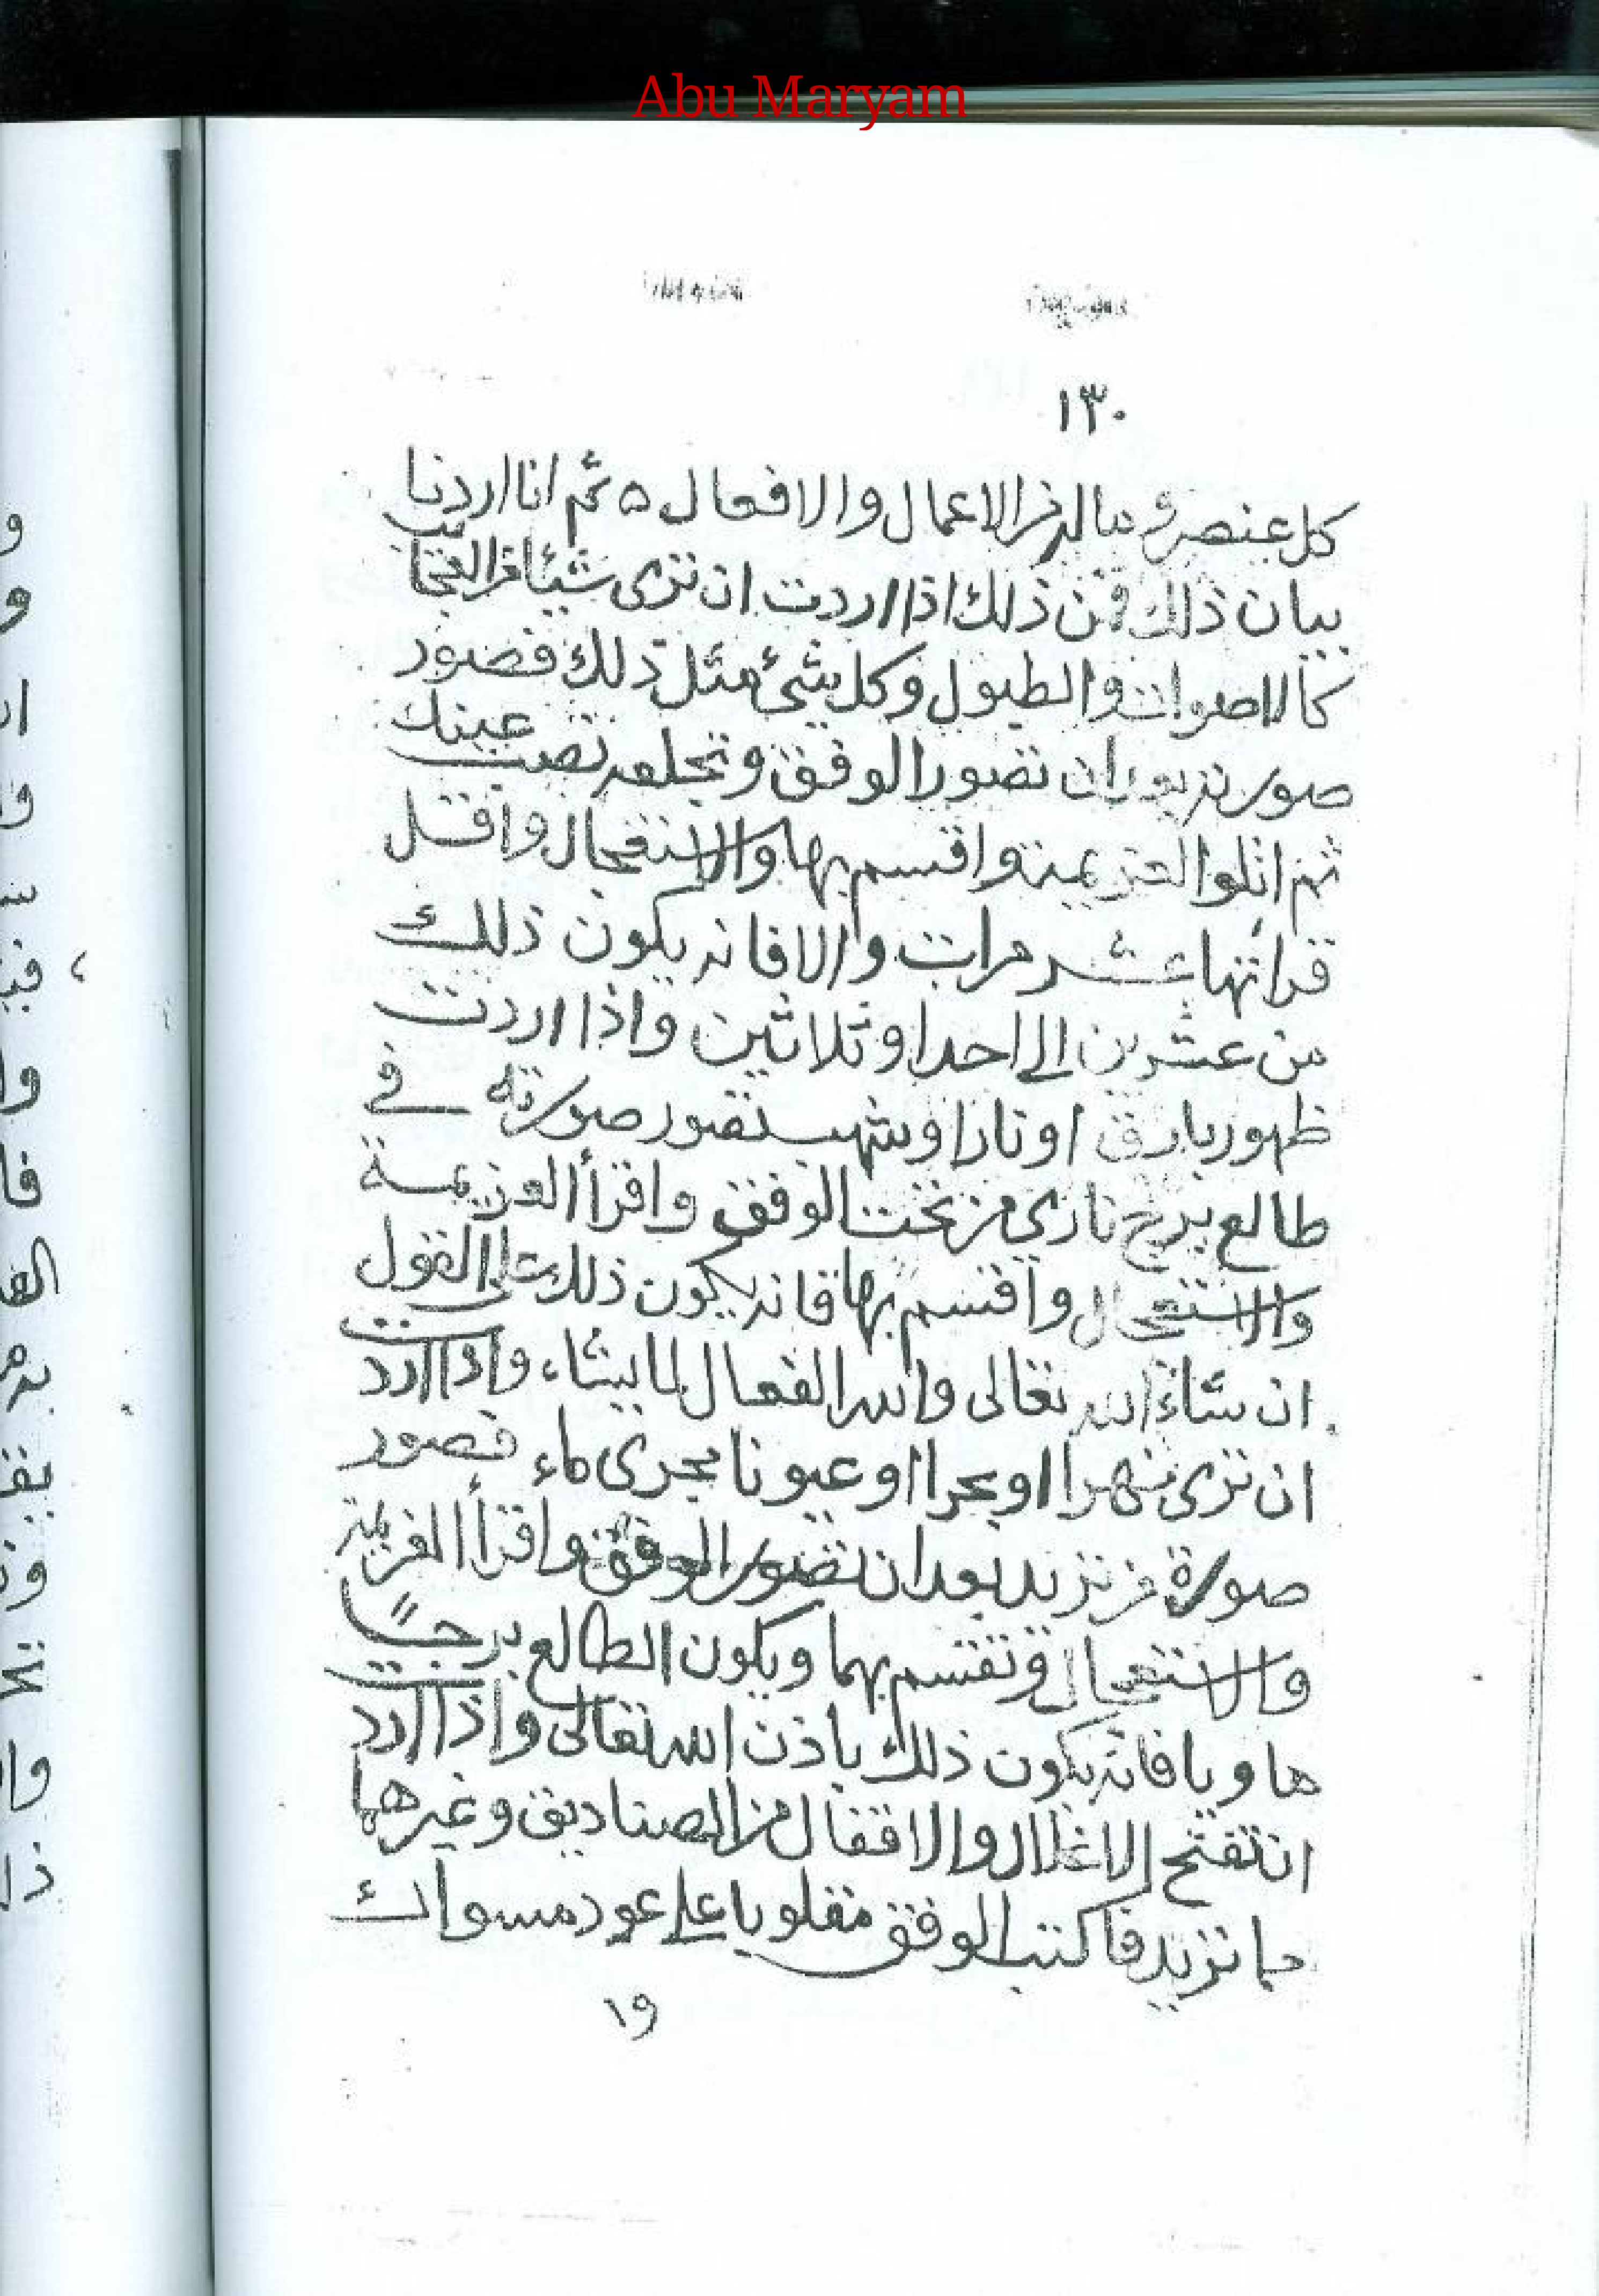 Abu Maryam
١٣٠
كل عنصر و ماله من الاعمال والافعال ٥ ثم انا اردنا
بيان ذلك فمن ذلك اذا اردت ان ترى شيئا من العجائب
كالاصوات والطبول وكل شئ مثل ذلك فصور
صورته بعد ان تصور الوفق وتجعله نصب عينك
ثم اتلوا العزيمة واقسم بها والاستعجال واقل
قراتها عشر مرات والا فانه يكون ذلك
من عشرين الى احدا وثلاثين واذا اردت
ظهور بارق او نارا وشهب تصور صورته في
طالع برج ناري من تحت الوفق واقرأ العزيمة
والاستعجال واقسم بها فانه يكون ذلك على القول
ان شاء الله تعالى والله الفعال لما يشاء، واذا اردت
ان ترى نهرا او بحرا او عيونا يجرى ماء فصور
صورة من تريد بعد ان تصور الوفق واقرأ العزيمة
والاستعجال وتقسم بهما ويكون الطالع برجاً
هاويا فانه يكون ذلك باذن الله تعالى واذا اردت
ان تفتح الاغلال والاقفال من الصناديق وغيرها
مما تريد فاكتب الوفق مقلوبا على عود مسواك
١٩